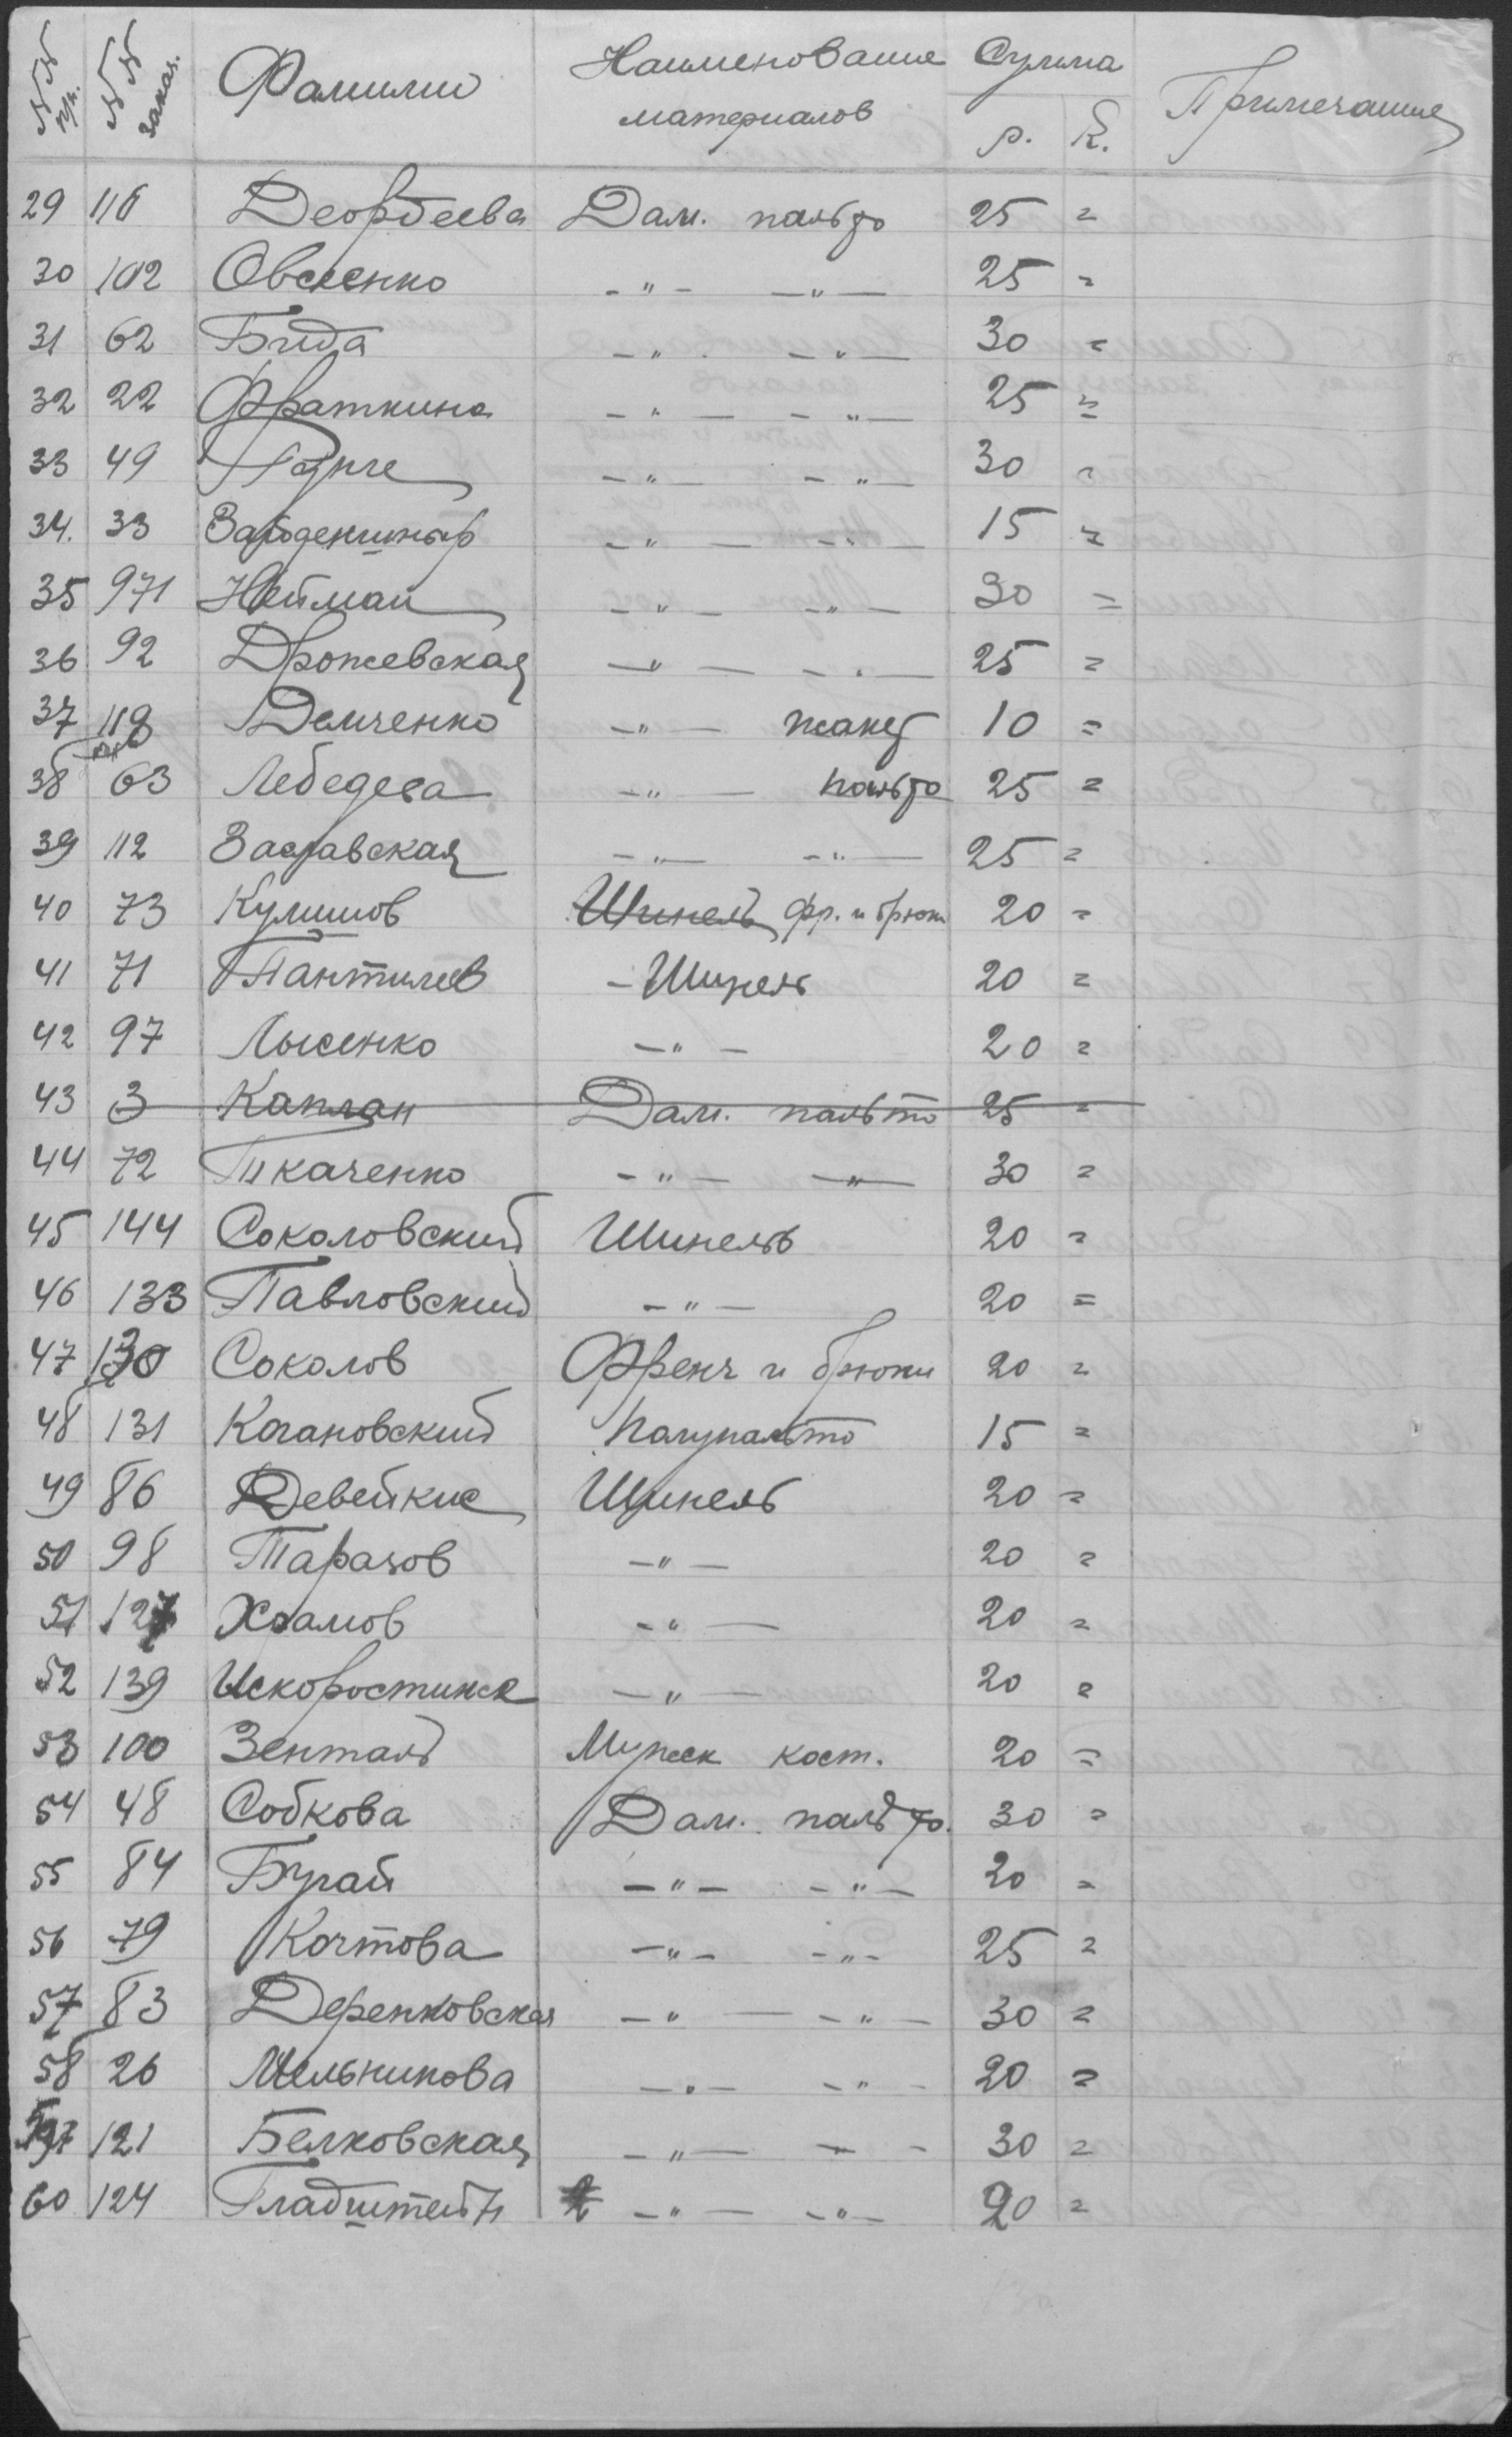 №№ п/п. №№ заказ. Фамилии Наименование материалов Сумма р. к. Примечание
29 116 Деордеева Дам. пальто 25 =
30 102 Овсеенко -"- -"- 25 =
31 62 Бида -"- -"- 30 =
32 22 Фраткина -"- -"- 25 =
33 49 -"- -"- 30 =
34. 33 -"- -"- 15 =
35 971 Нейман -"- -"- 30 =
36 92 Дрожевская -"- -"- 25 =
37 119 Демченко -"- жакет 10 =
38 63 Лебедева -"- пальто 25 =
39 112 Заславская -"- -"- 25 =
40 73 Кулишов Шинель фр. и брюки 20 =
41 71 Пантилев - Шинель 20 =
42 97 Лысенко -"- 20 =
43 3 Каплан Дам. пальто 25 =
44 72 Ткаченко -"- -"- 30 =
45 144 Соколовский Шинель 20 =
46 133 Павловский -"- 20 =
47 130 Соколов Френч и брюки 20 =
48 131 Кагановский Полупальто 15 =
49 86 Девейкис Шинель 20 =
50 98 Таразов -"- 20 =
51 127 Храмов -"- 20 =
52 139 Искоростинск -"- -"- 20 =
53 100 Зенталь Мужск кост. 20 =
54 48 Собкова Дам. пальто. 30 =
55 84 Бугай -"- -"- 20 =
56 79 Коптова -"- -"- 25 =
57 83 Деренковская -"- -"- 30 =
58 26 Мельникова -"- -"- 20 =
59 121 Белковская -"- -"- 30 =
60 124 Гладштейн -"- -"- 20 =